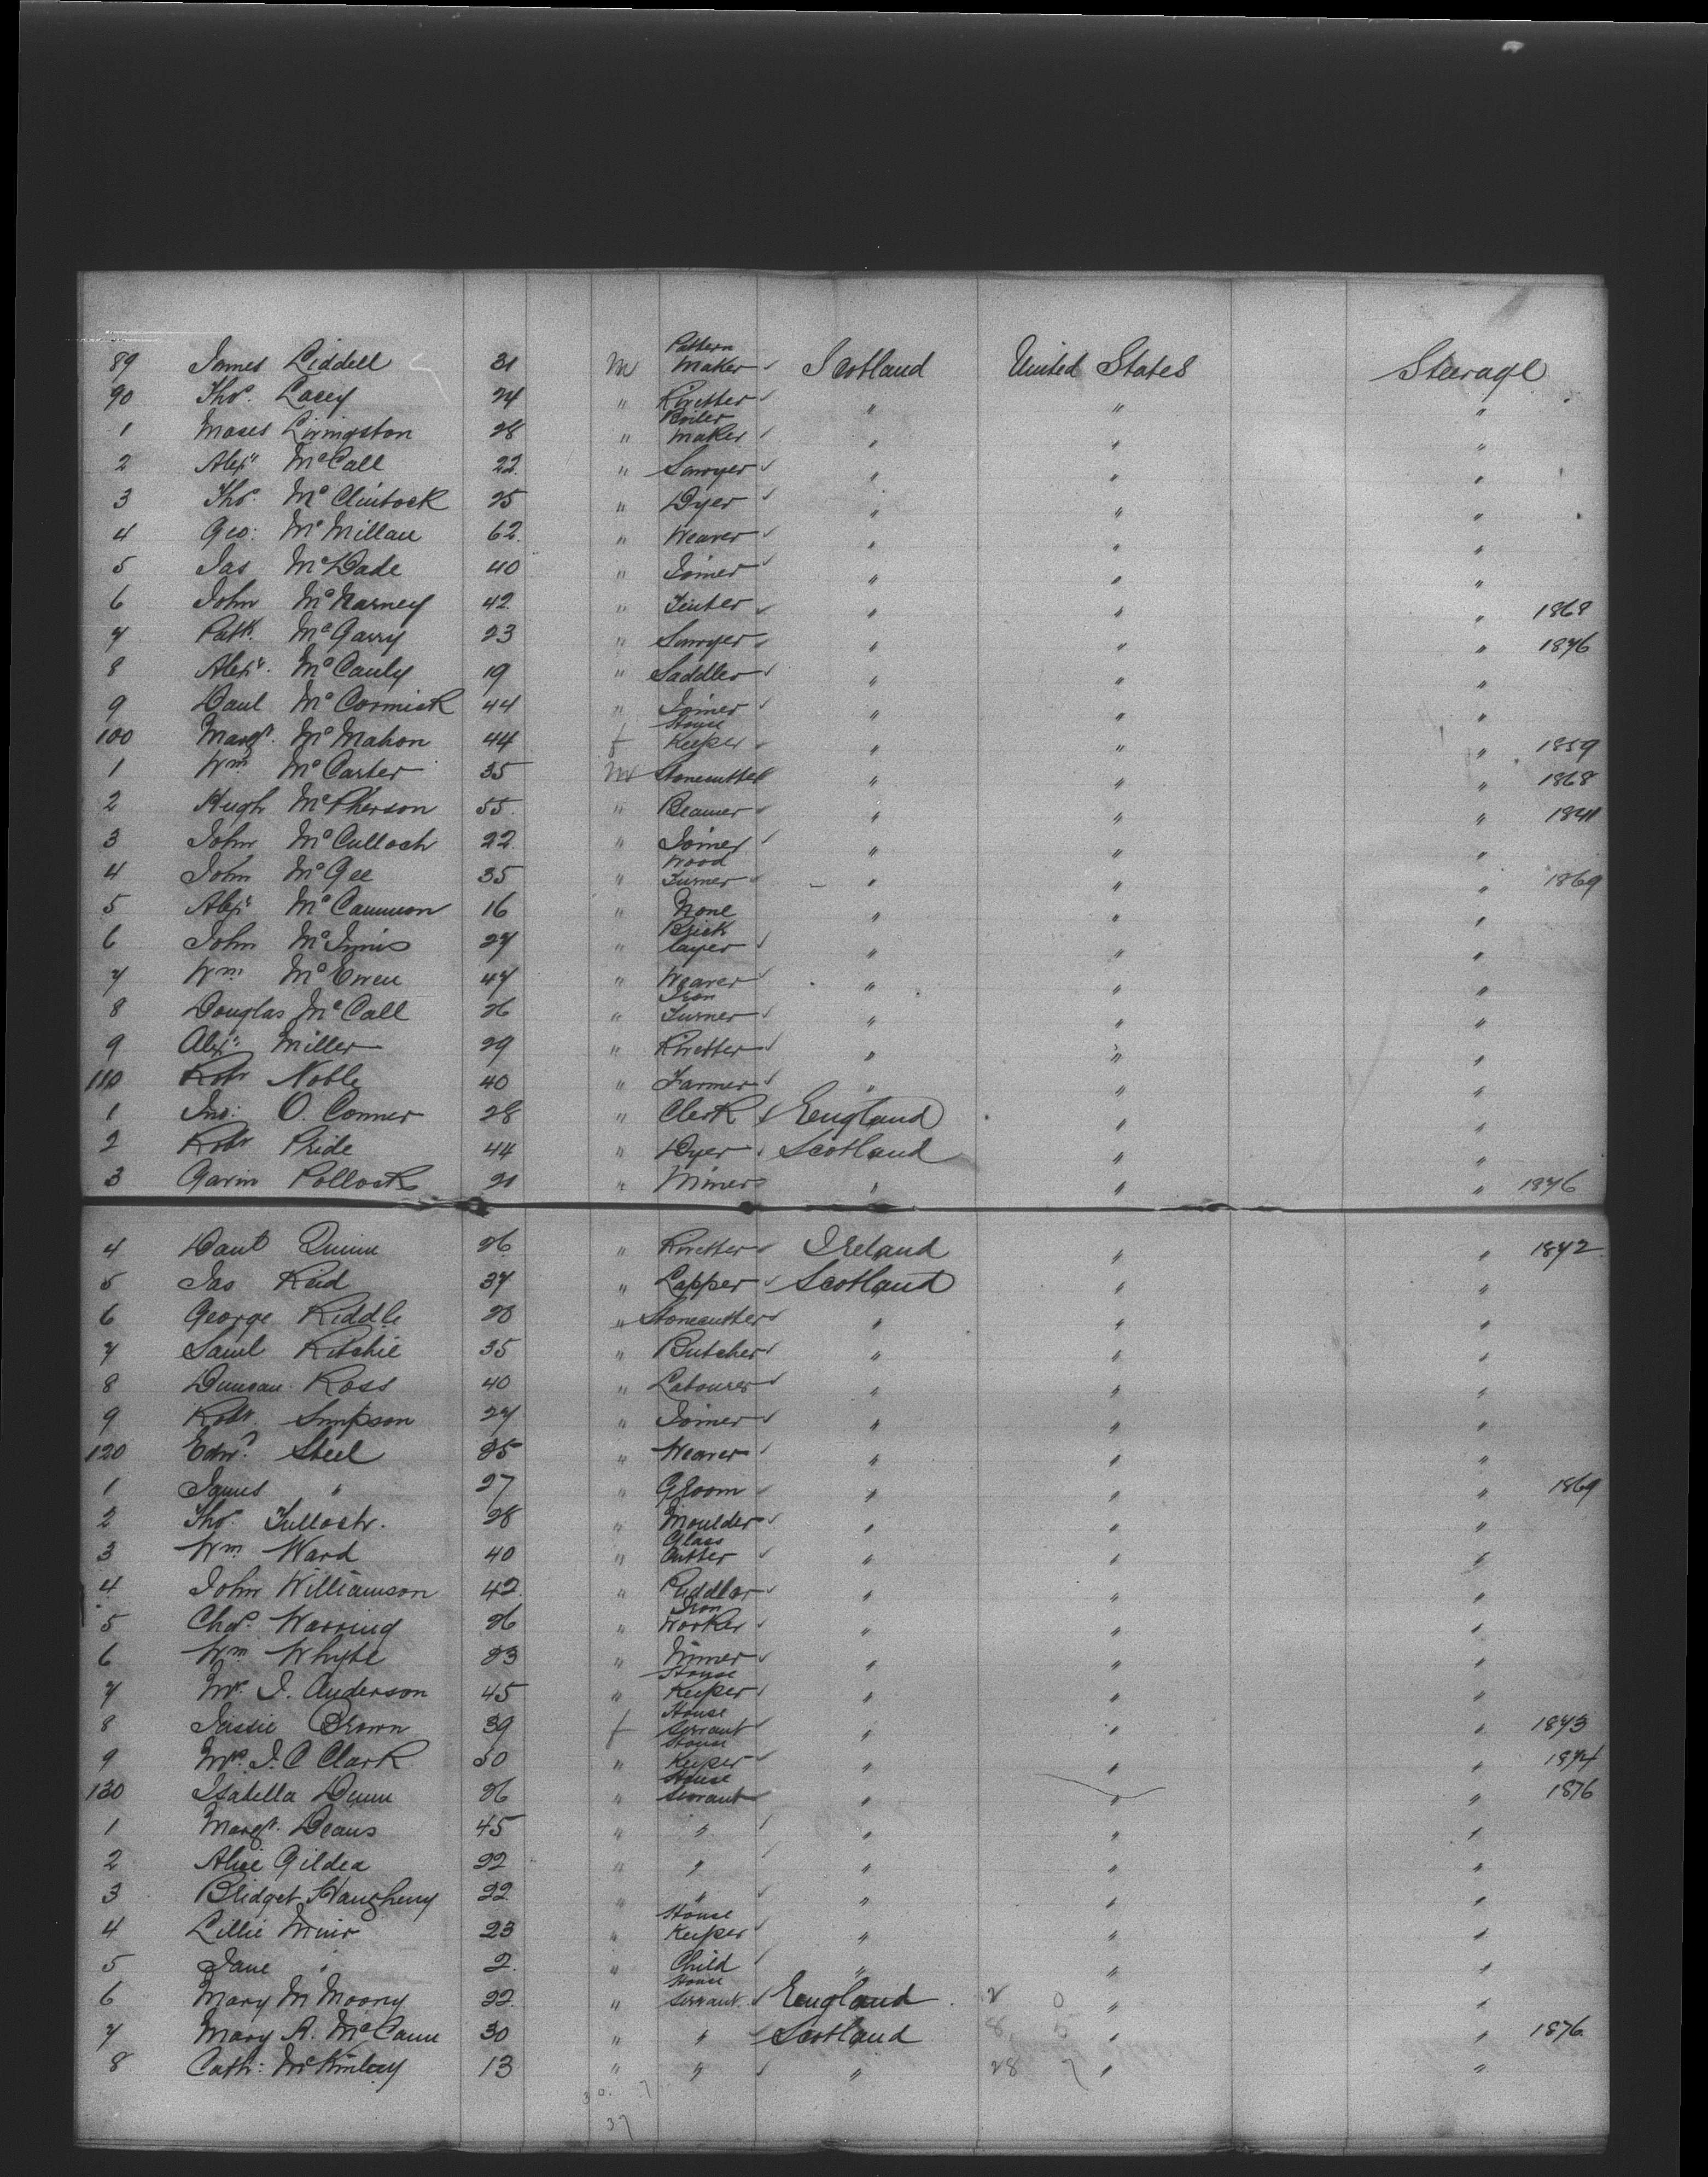 89 James Liddell 31 M Pattern Maker Scotland United States Steerage
90 Thos. Lacey 24 " Rivetter " " "
1 Moses Livingston 28 " Boiler Maker " " "
2 Alexr McCall 22 " Sawyer " " "
3 Thos. McClintock 25 " Dyer " " "
4 Geo: McMillan 62 " Weaver " " "
5 Jas McDade 40 " Joiner " " "
6 John McNarney 42 " Tenter " " " 1868
7 Patk. McGarry 23 " Sawyer " " " 1876
8 Alexr. McCauly 19 " Saddler " " "
9 Danl McCormick 44 " Joiner " " "
100 Margt. McMahon 44 f House Keeper " " " 1859
1 Wm McCarter 35 M Stonecutter " " " 1868
2 Hugh McPherson 55 " Beamer " " "
3 John McCulloch 22 " Joiner " " "
4 John McGee 35 " Wood Turner " " " 1869
5 Alexr McCammon 16 " None " " "
6 John McInnis 27 " Brick layer " " "
7 Wm McEwen 47 " Weaver " " "
8 Douglas McCall 26 " Iron Turner " " "
9 Alexr: Miller 29 " Rivetter " " "
110 Robt Noble 40 " Farmer " " "
1 Jno: O. Conner 28 " Clerk England " "
2 Robt Pride 44 " Dyer Scotland " "
3 Gavin Pollock 21 " Miner " " " 1876
4 Danl Quinn 26 " Rivetter Ireland " " 1872
5 Jas Reid 37 " Lapper Scotland " "
6 George Riddle 28 " Stonecutter " " "
7 Saml Ritchie 35 " Butcher " " "
8 Duncan Ross 40 " Labourer " " "
9 Robt. Simpson 27 " Joiner " " "
120 Edwd. Steel 25 " Weaver " " "
1 James " 27 " Groom " " " 1869
2 Thos. Tulloch. 28 " Moulder " " "
3 Wm Ward 40 " Glass Cutter " " "
4 John Williamson 42 " Puddler " " "
5 Chas. Warring 26 " Iron Worker " " "
6 Wm Whyte 23 " Miner " " "
7 Mr. J. Anderson 45 " House Keeper " " "
8 Jessie Brown 39 f House Servant " " " 1873
9 Mrs. J. C Clark 50 " House Keeper " " " 1874
130 Isabella Dunn 26 " House Servant " " " 1876
1 Margt. Deans 45 " " " " "
2 Alice Gildea 22 " " " " "
3 Bridget Haughery 22 " " " " "
4 Lillie Muir 23 " House Keeper " " "
5 Jane " 2 " Child " " "
6 Mary M Moony 22 " House Servant. England " "
7 Mary A. McCann 30 " " Scotland " " 1876
8 Cath: McKinlay 13 " " " 28 7 " "
37